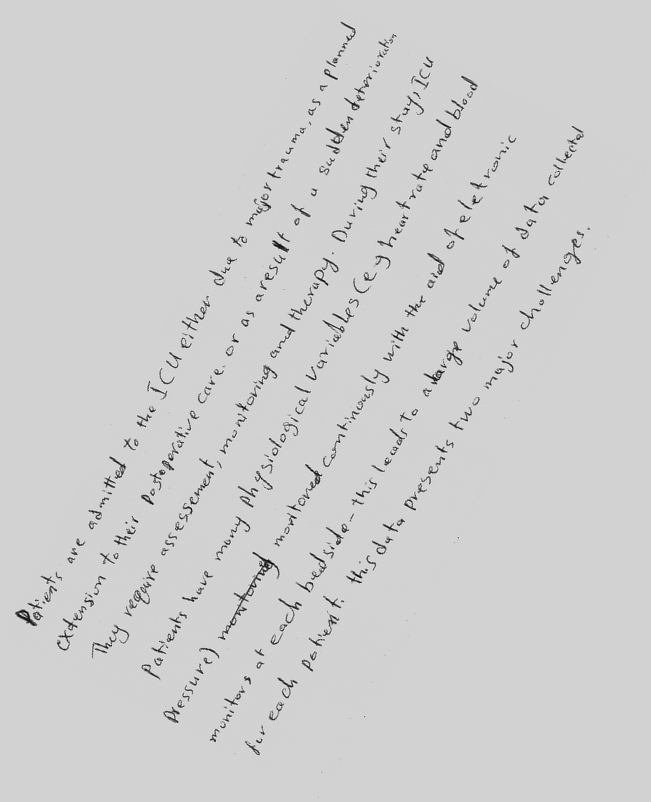 Patients are admitted to the ICU either due to major trauma, as a planned
extension to their postoperative care. or as a result of a sudden deterioration
They require assessement, monitoring and therapy. During their stay, ICU
Patients have many physiological variables (e.g heart rate and blood
Pressure) monitored continously with the aid of eletronic
monitors at each bedside - this leads to a large volume of data collected
for each patient. this data presents two major challenges.